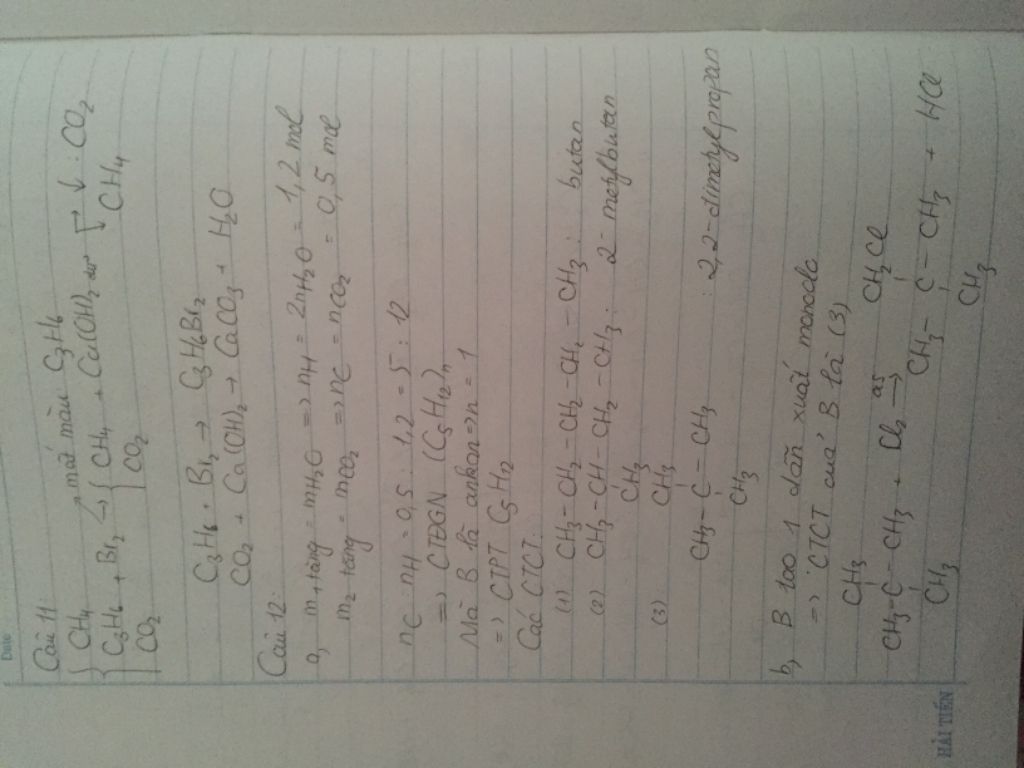 Date
Câu 11
CH4 → mất màu C3H6
C3H6 + Br2 → { CH4 + Ca(OH)2 dư → ↓ : CO2
CO2 CO2 CH4
C3H6 + Br2 → C3H6Br2
CO2 + Ca(OH)2 → CaCO3 + H2O
Câu 12:
a, m1 tăng = mH2O => nH = 2nH2O = 1,2 mol
m2 tăng = mCO2 => nC = nCO2 = 0,5 mol
nC : nH = 0,5 : 1,2 = 5 : 12
=> CTĐGN (C5H12)n
Mà B là ankan => n = 1
=> CTPT C5H12
Các CTCT:
(1) CH3-CH2-CH2-CH2-CH3 : butan
(2) CH3-CH-CH2-CH3 : 2-metylbutan
CH3
(3) CH3
CH3-C-CH3 : 2,2-dimetylpropan
CH3
b, B tạo 1 dẫn xuất monoclo
=> CTCT của B là (3)
CH3 CH2Cl
CH3-C-CH3 + Cl2 as→ CH3-C-CH3 + HCl
CH3 CH3
HẢI TIẾN